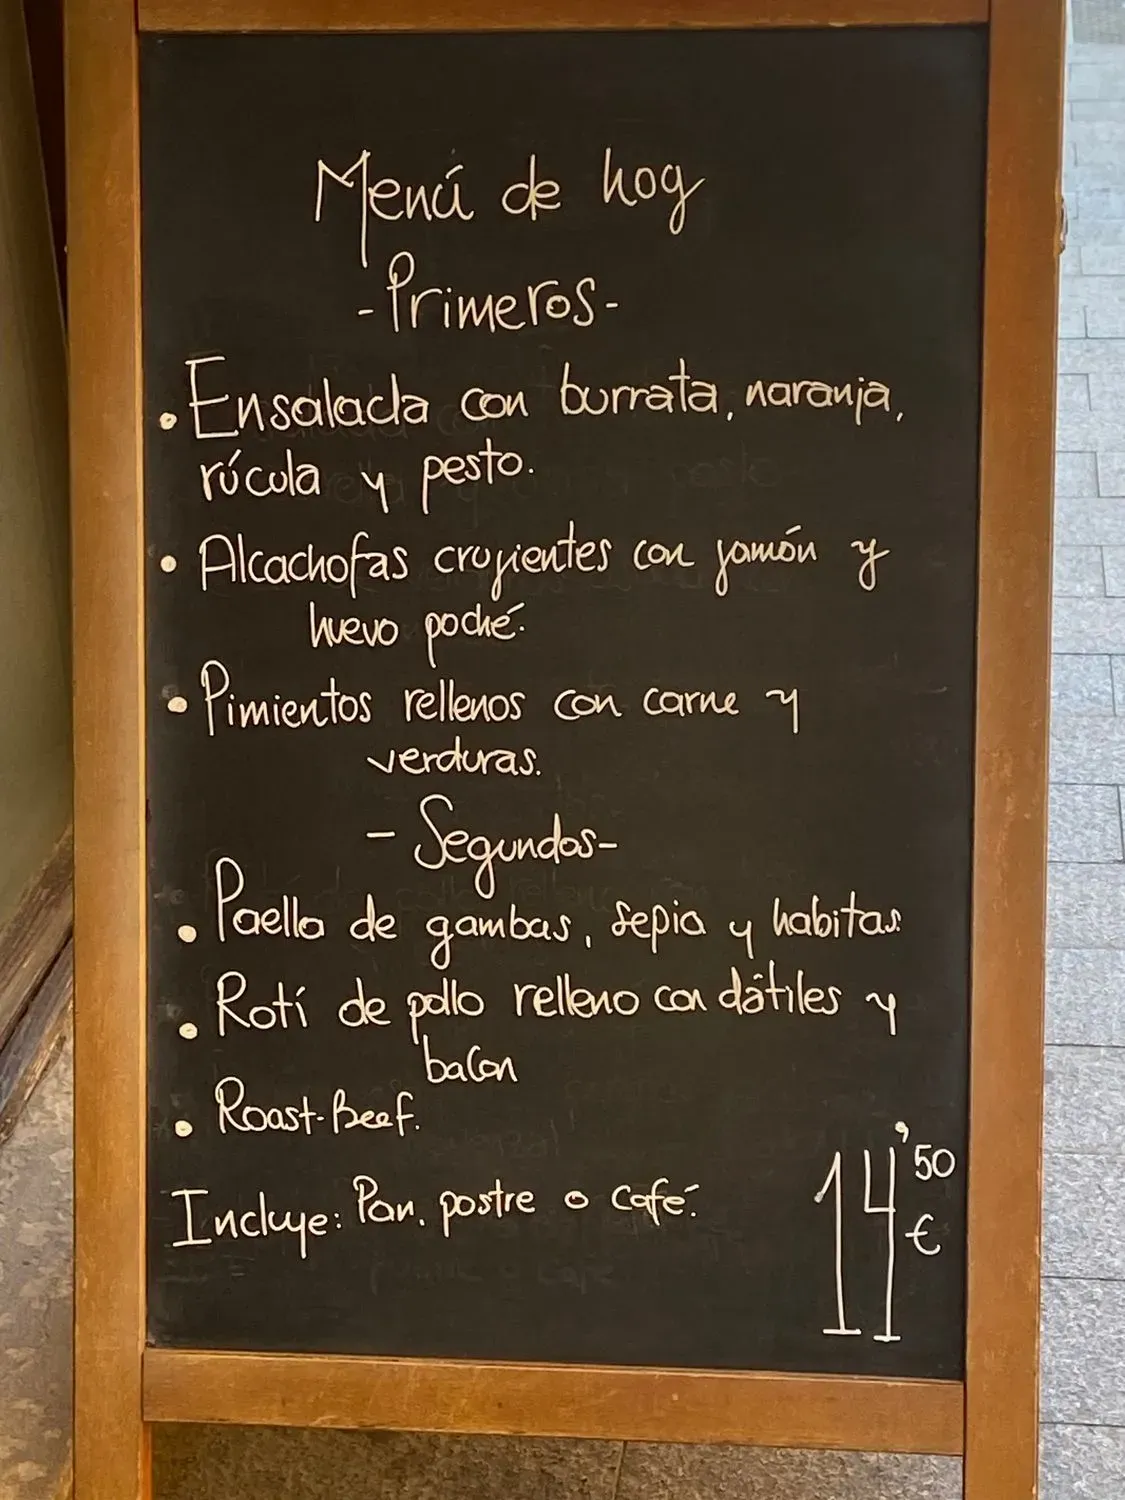 Menú de hoy
-Primeros-
• Ensalada con burrata, naranja,
rúcula y pesto.
• Alcachofas crujientes con jamón y
huevo poché.
• Pimientos rellenos con carne y
verduras.
- Segundos-
• Paella de gambas, sepia y habitas.
• Rotí de pollo relleno con dátiles y
bacon
• Roast-Beef.
Incluye: Pan, postre o café.
14'50
€